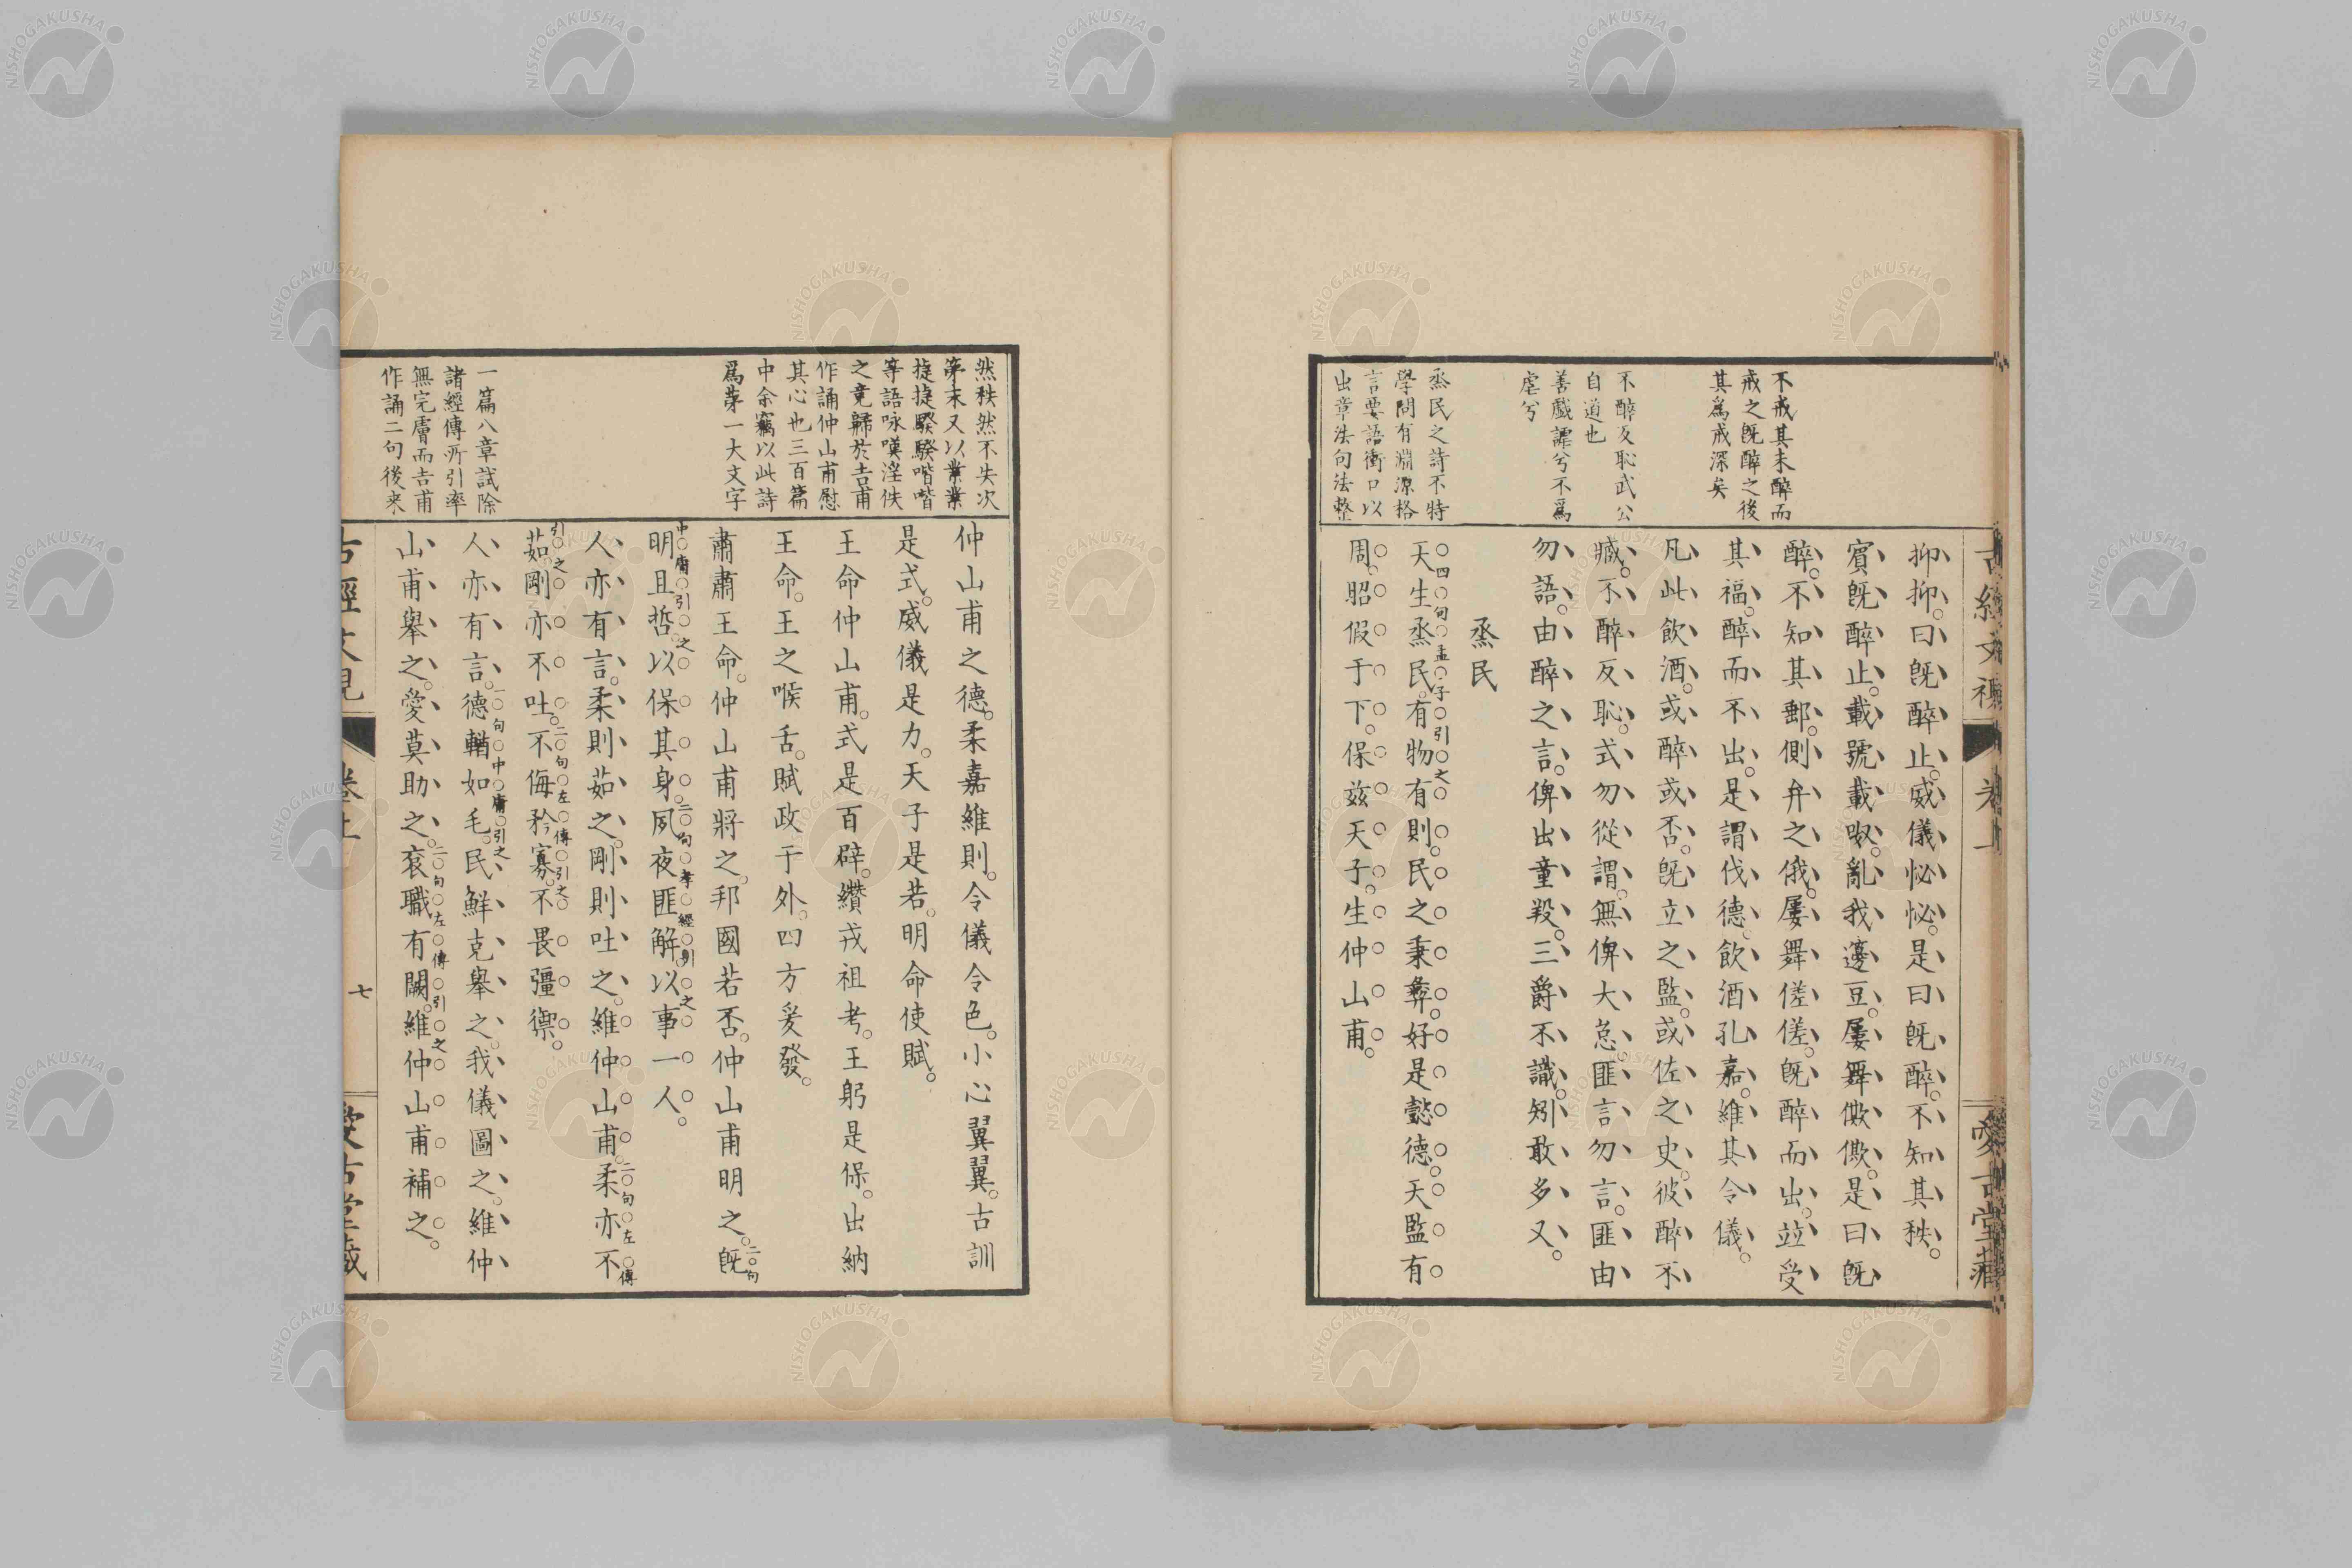 不戒其未醉而
戒之旣醉之後
其爲戒深矣
不醉反恥武公
自道也
善戲謔兮不爲
虐兮
烝民之詩不特
學問有淵源格
言要語衝口以
出章法句法整
抑抑。曰旣醉止。威儀怭怭。是曰旣醉。不知其秩。
賓旣醉止。載號載呶。亂我籩豆。屢舞僛僛。是曰旣
醉。不知其郵。側弁之俄。屢舞傞傞。旣醉而出。竝受
其福。醉而不出。是謂伐德。飲酒孔嘉。維其令儀。
凡此飲酒。或醉或否。旣立之監。或佐之史。彼醉不
臧。不醉反恥。式勿從謂。無俾大怠。匪言勿言。匪由
勿語。由醉之言。俾出童羖。三爵不識。矧敢多又。
烝民
天生烝民。有物有則。民之秉彝。好是懿德。天監有
四句孟子引之
周。昭假于下。保茲天子。生仲山甫。
然秩然不失次
第末又以業業
捷捷騤騤喈喈
等語咏嘆淫佚
之竟歸於吉甫
作誦仲山甫慰
其心也三百篇
中余竊以此詩
爲第一大文字
一篇八章試除
諸經傳所引率
無完膚而吉甫
作誦二句後來
仲山甫之德。柔嘉維則。令儀令色。小心翼翼。古訓
是式。威儀是力。天子是若。明命使賦。
王命仲山甫。式是百辟。纘戎祖考。王躬是保。出納
王命。王之喉舌。賦政于外。四方爰發。
肅肅王命。仲山甫將之。邦國若否。仲山甫明之。旣
二句
明且哲。以保其身。夙夜匪解。以事一人。
中庸引之二句孝經引之
人亦有言。柔則茹之。剛則吐之。維仲山甫。柔亦不
二句左傳
茹。剛亦不吐。不侮矜寡。不畏彊禦。
引之二句左傳引之
人亦有言。德輶如毛。民鮮克舉之。我儀圖之。維仲
一句中庸引之
山甫舉之。愛莫助之。袞職有闕。維仲山甫補之。
二句左傳引之
七